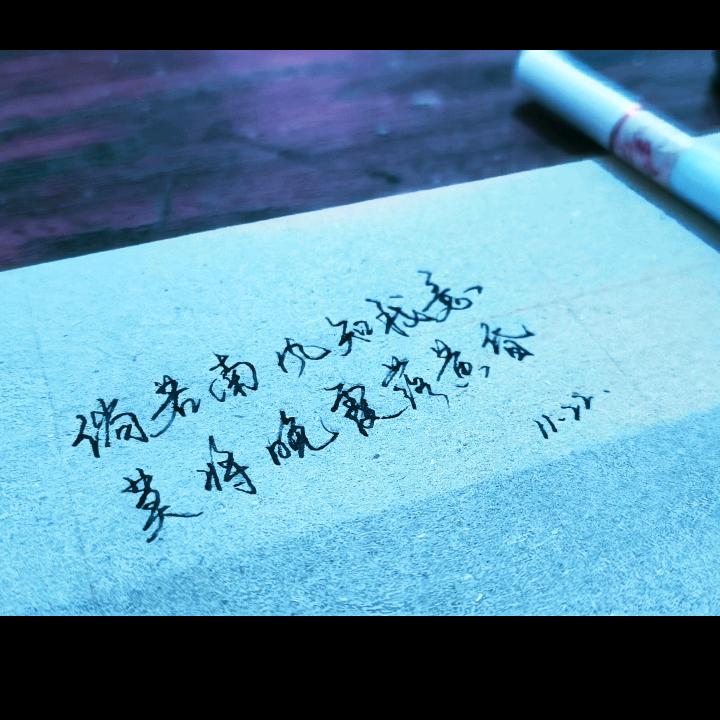 倘若南风知我意
莫将晚霞落黄昏
11.22.